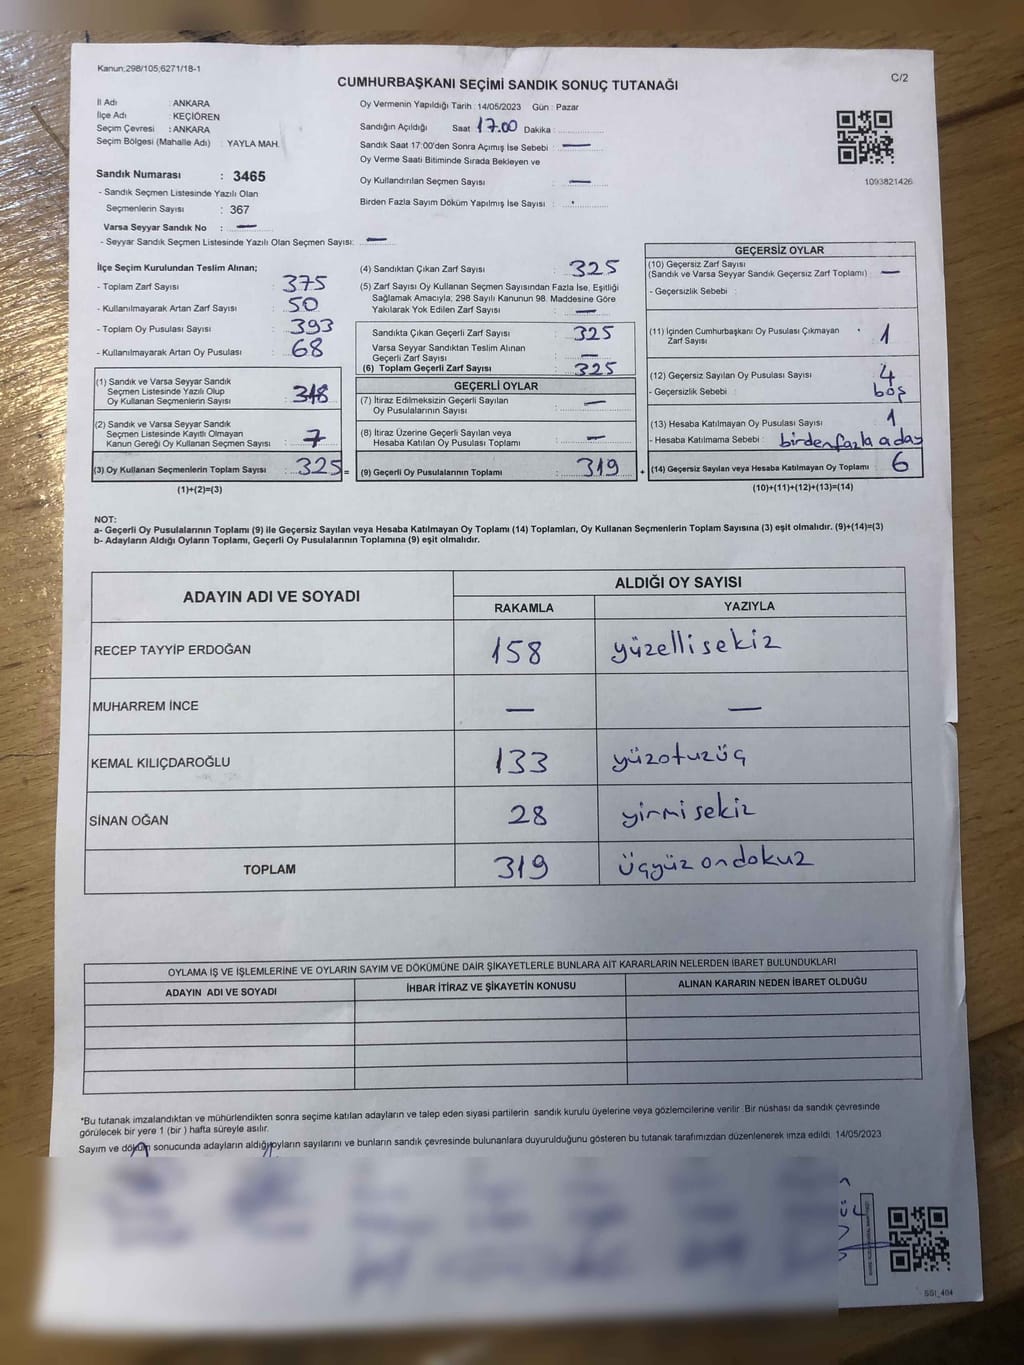 Kanun;298/105;6271/18-1
C/2
CUMHURBAŞKANI SEÇİMİ SANDIK SONUÇ TUTANAĞI
İl Adı : ANKARA
İlçe Adı : KEÇİÖREN
Seçim Çevresi : ANKARA
Seçim Bölgesi (Mahalle Adı) : YAYLA MAH.
Sandık Numarası : 3465
- Sandık Seçmen Listesinde Yazılı Olan
Seçmenlerin Sayısı : 367
Varsa Seyyar Sandık No : —
- Seyyar Sandık Seçmen Listesinde Yazılı Olan Seçmen Sayısı: —
Oy Vermenin Yapıldığı Tarih : 14/05/2023 Gün : Pazar
Sandığın Açıldığı Saat 17.00 Dakika :
Sandık Saat 17:00'den Sonra Açımış İse Sebebi : —
Oy Verme Saati Bitiminde Sırada Bekleyen ve
Oy Kullandırılan Seçmen Sayısı : —
Birden Fazla Sayım Döküm Yapılmış İse Sayısı :
1093821426
İlçe Seçim Kurulundan Teslim Alınan;
- Toplam Zarf Sayısı : 375
- Kullanılmayarak Artan Zarf Sayısı : 50
- Toplam Oy Pusulası Sayısı : 393
- Kullanılmayarak Artan Oy Pusulası : 68
(1) Sandık ve Varsa Seyyar Sandık
Seçmen Listesinde Yazılı Olup
Oy Kullanan Seçmenlerin Sayısı : 318
(2) Sandık ve Varsa Seyyar Sandık
Seçmen Listesinde Kayıtlı Olmayan
Kanun Gereği Oy Kullanan Seçmen Sayısı : 7
(3) Oy Kullanan Seçmenlerin Toplam Sayısı : 325 =
(1)+(2)=(3)
(4) Sandıktan Çıkan Zarf Sayısı : 325
(5) Zarf Sayısı Oy Kullanan Seçmen Sayısından Fazla İse, Eşitliği
Sağlamak Amacıyla, 298 Sayılı Kanunun 98. Maddesine Göre
Yakılarak Yok Edilen Zarf Sayısı : —
Sandıkta Çıkan Geçerli Zarf Sayısı : 325
Varsa Seyyar Sandıktan Teslim Alınan
Geçerli Zarf Sayısı : —
(6) Toplam Geçerli Zarf Sayısı : 325
GEÇERLİ OYLAR
(7) İtiraz Edilmeksizin Geçerli Sayılan
Oy Pusulalarının Sayısı : —
(8) İtiraz Üzerine Geçerli Sayılan veya
Hesaba Katılan Oy Pusulası Toplamı : —
(9) Geçerli Oy Pusulalarının Toplamı : 319 +
GEÇERSİZ OYLAR
(10) Geçersiz Zarf Sayısı
(Sandık ve Varsa Seyyar Sandık Geçersiz Zarf Toplamı) —
- Geçersizlik Sebebi :
(11) İçinden Cumhurbaşkanı Oy Pusulası Çıkmayan
Zarf Sayısı 1
(12) Geçersiz Sayılan Oy Pusulası Sayısı : 4
- Geçersizlik Sebebi : boş
(13) Hesaba Katılmayan Oy Sayısı : 1
- Hesaba Katılmama Sebebi : birden fazla aday
(14) Geçersiz Sayılan veya Hesaba Katılmayan Oy Toplamı 6
(10)+(11)+(12)+(13)=(14)
NOT:
a- Geçerli Oy Pusulalarının Toplamı (9) ile Geçersiz Sayılan veya Hesaba Katılmayan Oy Toplamı (14) Toplamları, Oy Kullanan Seçmenlerin Toplam Sayısına (3) eşit olmalıdır. (9)+(14)=(3)
b- Adayların Aldığı Oyların Toplamı, Geçerli Oy Pusulalarının Toplamına (9) eşit olmalıdır.
ADAYIN ADI VE SOYADI
ALDIĞI OY SAYISI
RAKAMLA YAZIYLA
RECEP TAYYİP ERDOĞAN 158 yüzellisekiz
MUHARREM İNCE — —
KEMAL KILIÇDAROĞLU 133 yüzotuzüç
SİNAN OĞAN 28 yirmisekiz
TOPLAM 319 üçyüz ondokuz
OYLAMA İŞ VE İŞLEMLERİNE VE OYLARIN SAYIM VE DÖKÜMÜNE DAİR ŞİKAYETLERLE BUNLARA AİT KARARLARIN NELERDEN İBARET BULUNDUKLARI
ADAYIN ADI VE SOYADI İHBAR İTİRAZ VE ŞİKAYETİN KONUSU ALINAN KARARIN NEDEN İBARET OLDUĞU
*Bu tutanak imzalandıktan ve mühürlendikten sonra seçime katılan adayların ve talep eden siyasi partilerin sandık kurulu üyelerine veya gözlemcilerine verilir. Bir nüshası da sandık çevresinde
görülecek bir yere 1 (bir ) hafta süreyle asılır.
Sayım ve döküm sonucunda adayların aldığı oyların sayılarını ve bunların sandık çevresinde bulunanlara duyurulduğunu gösteren bu tutanak tarafımızdan düzenlenerek imza edildi. 14/05/2023
SSI_404